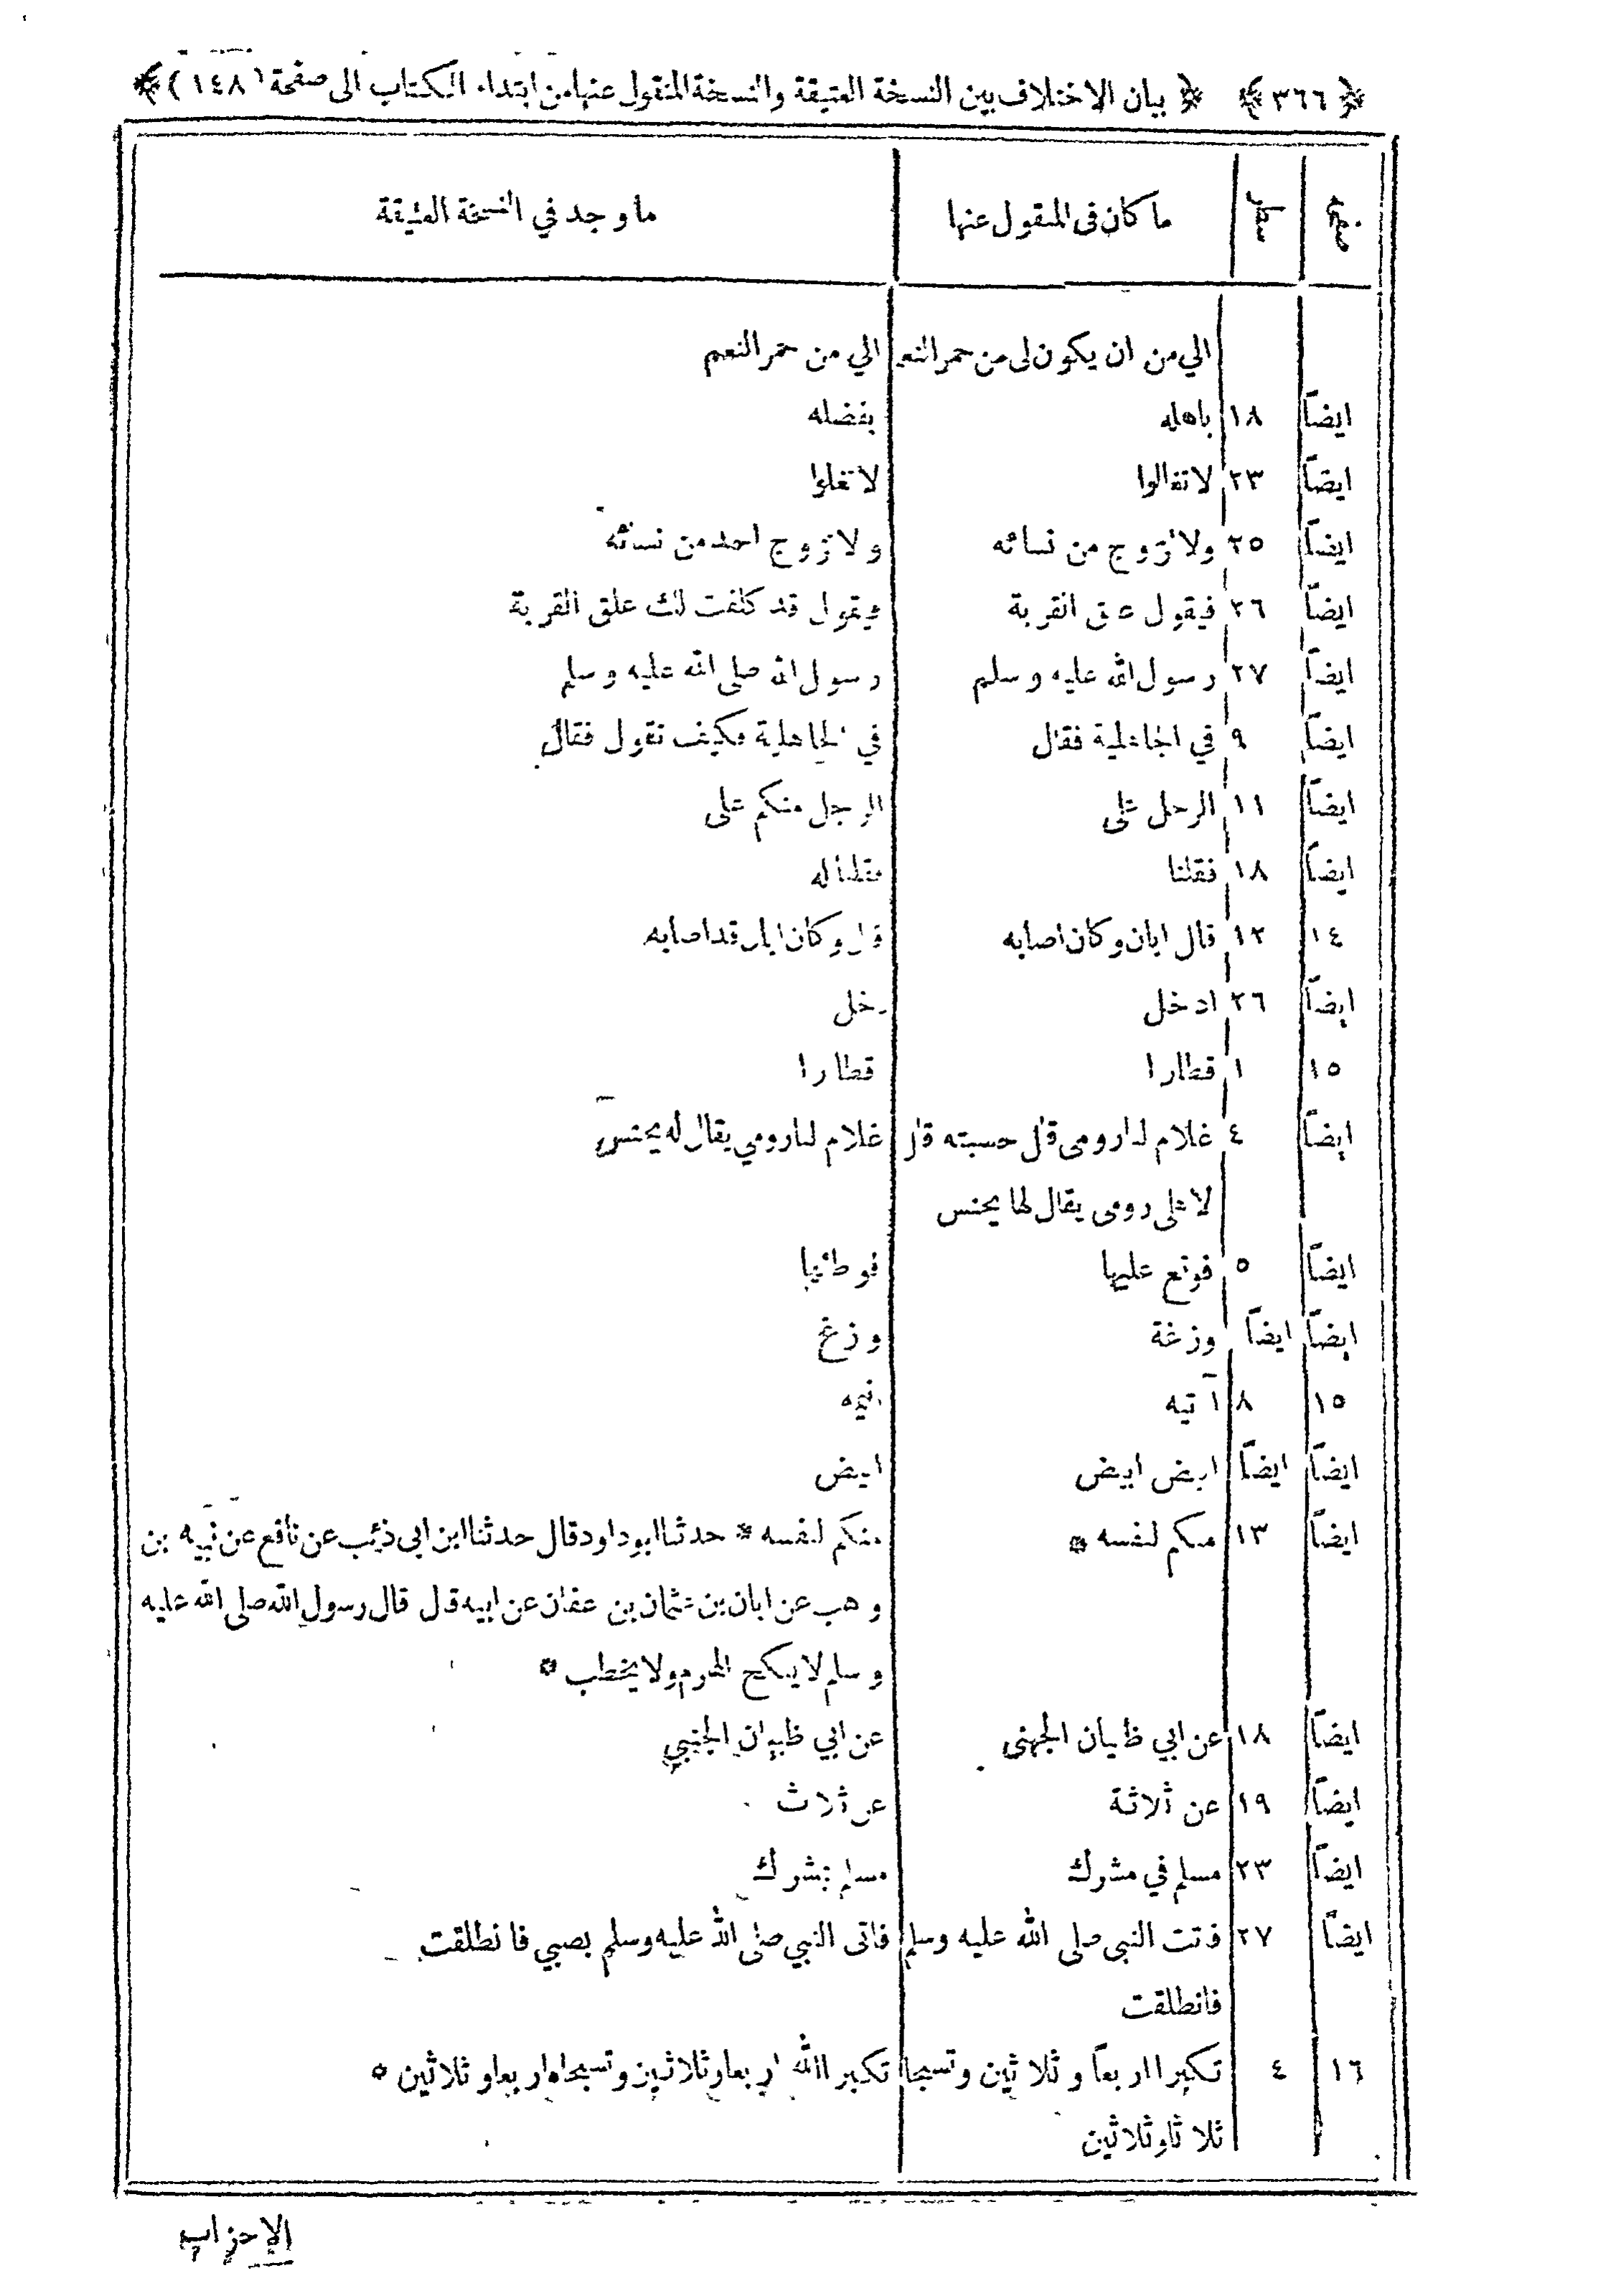 ﴿ ٣٦٦ ﴾ ﴿ بيان الاختلاف بين النسخة العتيقة والنسخة المنقول عنها من ابتداء الكتاب الى صفحة (١٤٨) ﴾
صفحه سطر ما كان في المنقول عنها ما وجد في النسخة العتيقة
الي من ان يكون لى من حمر النعم الي من حمر النعم
ايضاً ١٨ باهله بفضله
ايضاً ٢٣ لا تغالوا لا تغلوا
ايضاً ٢٥ ولا تزوج من نسائه ولا تزوج احد من نسائه
ايضاً ٢٦ فيقول علق القربة فيقول قد كلفت لك علق القربة
ايضاً ٢٧ رسول الله عليه وسلم رسول الله صلى الله عليه وسلم
ايضاً ٩ في الجاهلية فقال في الجاهلية فكيف تقول فقال
ايضاً ١١ الرجل على الرجل منكم على
ايضاً ١٨ فقلنا فقلنا له
١٤ ١٢ قال ابان وكان اصابه قال وكان ابان قد اصابه
ايضاً ٢٦ ادخل دخل
١٥ ١ قطارا قطارا
ايضاً ٤ غلام لنا رومى قال حسبته قال غلام لنا رومي يقال له يحنس
لاهلى رومى يقال لها يحنس
ايضاً ٥ فوقع عليها فوطئها
ايضاً ايضاً وزغة وزغ
١٥ ٨ آتيه
ايضاً ايضاً ابيض ابيض ابيض
ايضاً ١٣ منكم لنفسه * منكم لنفسه * حدثنا ابو داود قال حدثنا ابن ابى ذئب عن نافع عن نبيه بن
وهب عن ابان بن عثمان بن عفان عن ابيه قال قال رسول الله صلى الله عليه
وسلم لا ينكح المحرم ولا يخطب *
ايضاً ١٨ عن ابي ظبيان الجهنى عن ابي ظبيان الجنبي
ايضاً ١٩ عن ثلاثة عن ثلاث
ايضاً ٢٣ مسلم في مشرك مسلم بمشرك
ايضاً ٢٧ فاتت النبى صلى الله عليه وسلم فاتى النبي صلى الله عليه وسلم بصبي فانطلقت
فانطلقت
١٦ ٤ تكبرا اربعاً وثلاثين وتسبحا تكبرا الله اربعا وثلاثين وتسبحاه اربعا وثلاثين ٥
ثلاثا وثلاثين
الاحزاب